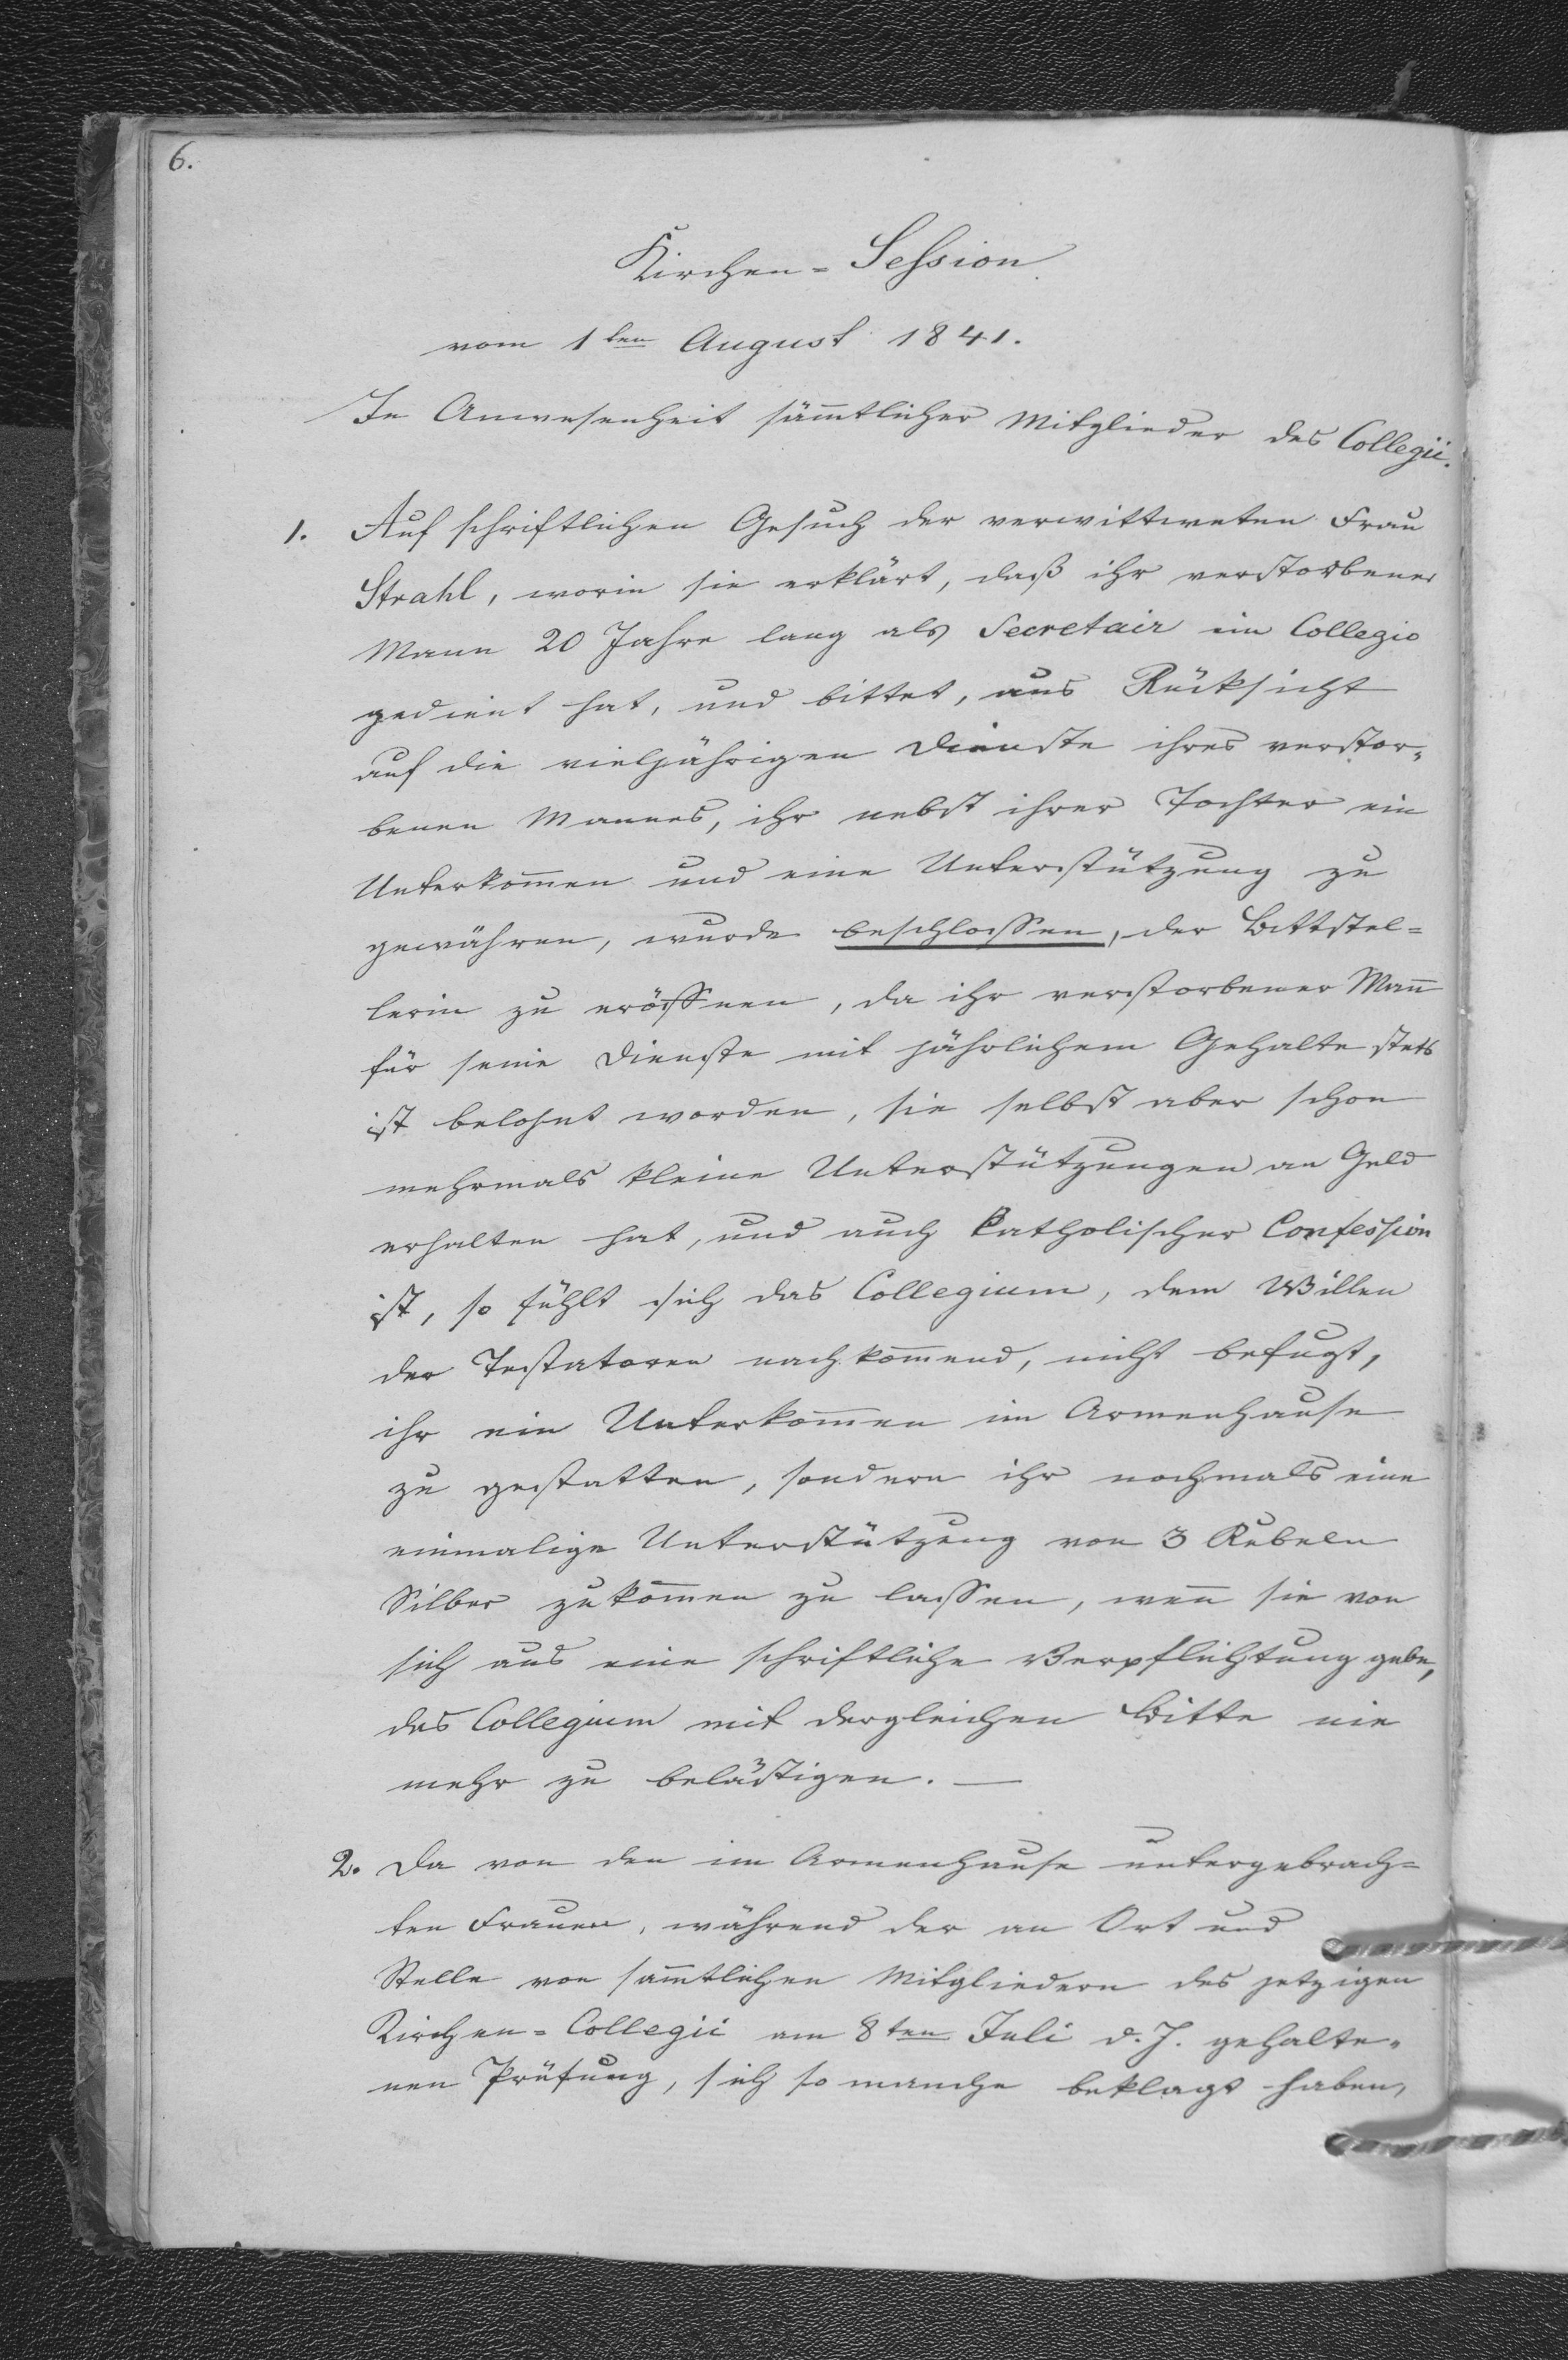 6.
Kirchen-Session
vom 1ten August 1841.
In Anwesenheit sämmtlicher Mitglieder des Collegii.
1. Auf schriftlichen Gesuch der verwittweten Frau
Strahl, worin sie erklärt, daß ihr verstorbener
Mann 20 Jahre lang als Secretair im Collegio
gedient hat, und bittet, aus Rücksicht
auf die vieljährigen Dienste ihres verstor-
benen Mannes, ihr nebst ihrer Tochter ein
Unterkommen und eine Unterstützung zu
gewähren, wurde beschlossen, der Bittstel=
lerin zu eröffnen, da ihr verstorbener Mann
für seine Dienste mit jährlichem Gehalte stets
ist belohnt worden, sie selbst aber schon
mehrmals kleine Unterstützungen an Geld
erhalten hat, und auch katholischer Confession
ist, so fühlt sich das Collegium, dem Willen
der Testatoren nachkommend, nicht befugt,
ihr ein Unterkommen im Armenhause
zu gestatten, sondern ihr nochmals eine
einmalige Unterstützung von 3 Rubeln
Silber zukommen zu lassen, wenn sie von
sich aus eine schriftliche Verpflichtung gebe,
das Collegium mit dergleichen Bitte nie
mehr zu belästigen. —
2. Da von den im Armenhause untergebrach=
ten Frauen, während der an Ort und
Stelle von sämmtlichen Mitgliedern des jetzigen
Kirchen=Collegii am 8ten Juli d. J. gehalte-
nen Prüfung, sich so manche beklagt haben,